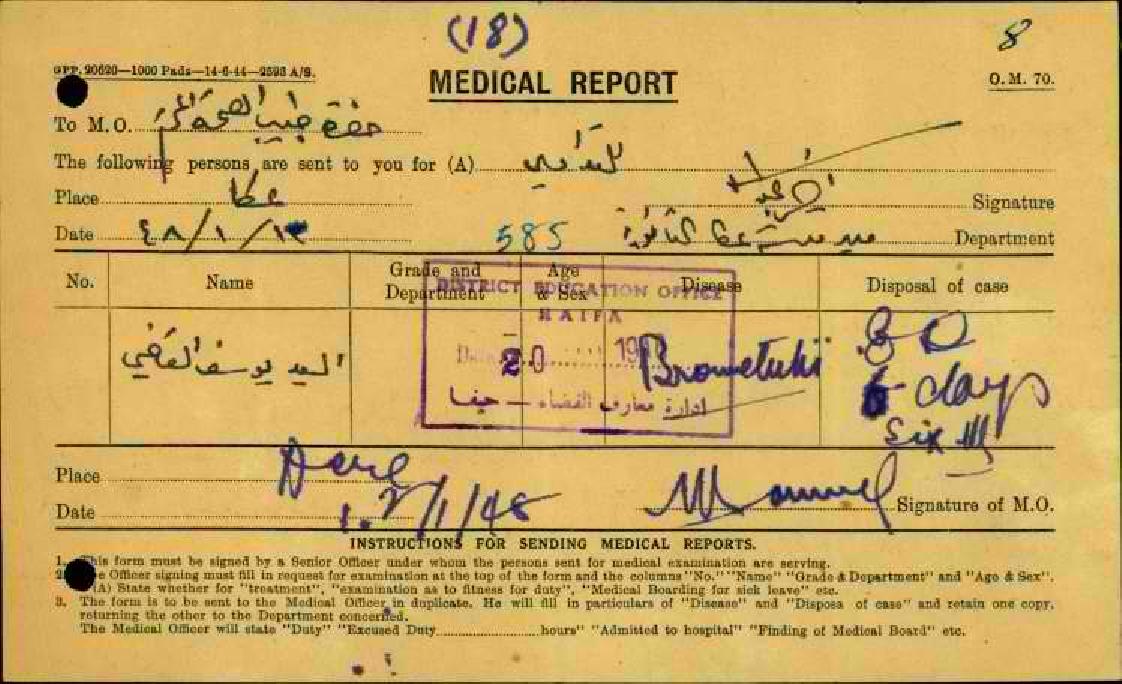 (18)
8
GPP. 20620—1000 Pads—14-6-44—2593 A/S.
MEDICAL REPORT
O.M. 70.
To M.O. حضرة طبيب الصحة
The following persons are sent to you for (A)
Place عكا
Signature
Date ٤٨/١/١٢
585
مدرسة عكا الثانوية Department
No. Name Grade and Department Age & Sex Disease Disposal of case
DISTRICT EDUCATION OFFICE
HAIFA
Date 20 19
ادارة معارف القضاء — حيفا
السيد يوسف
E D
6 days
Six
Place Acre
Date 1/48
Signature of M.O.
INSTRUCTIONS FOR SENDING MEDICAL REPORTS.
1. This form must be signed by a Senior Officer under whom the persons sent for medical examination are serving.
2. The Officer signing must fill in request for examination at the top of the form and the columns "No." "Name" "Grade & Department" and "Age & Sex".
(A) State whether for "treatment", "examination as to fitness for duty", "Medical Boarding for sick leave" etc.
3. The form is to be sent to the Medical Officer in duplicate. He will fill in particulars of "Disease" and "Disposa of case" and retain one copy,
returning the other to the Department concerned.
The Medical Officer will state "Duty" "Excused Duty..................hours" "Admitted to hospital" "Finding of Medical Board" etc.